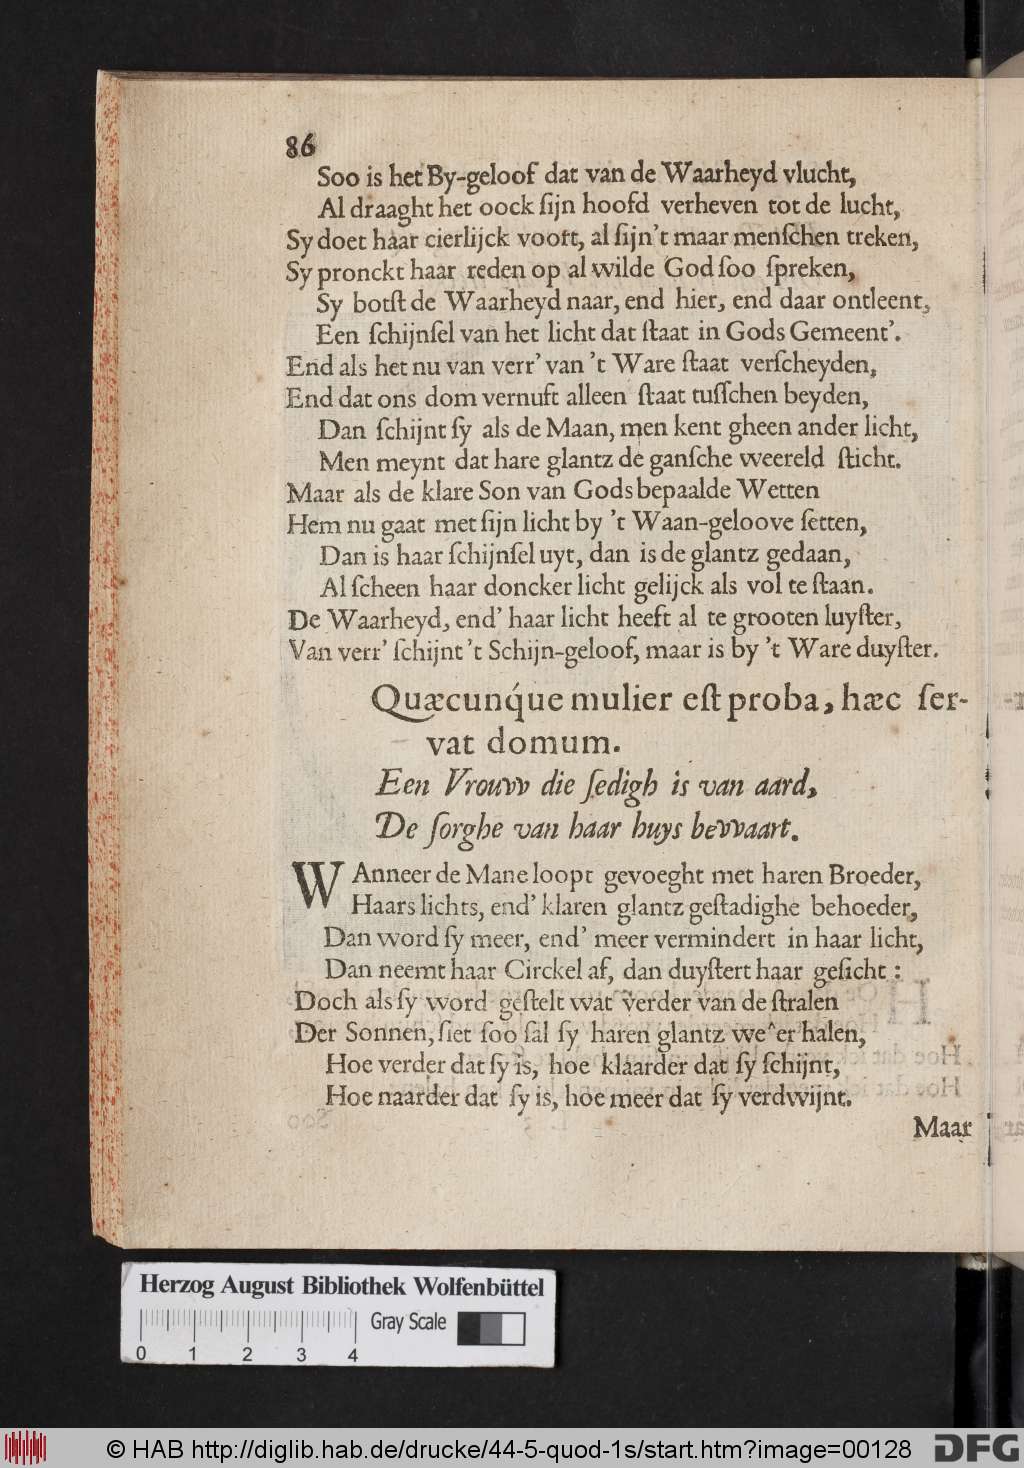 86
Soo is het By-geloof dat van de Waarheyd vlucht,
Al draaght het oock ſijn hoofd verheven tot de lucht,
Sy doet haar cierlijck voort, al ſijn't maar menſchen treken,
Sy pronckt haar reden op al wilde God ſoo ſpreken,
Sy botſt de Waarheyd naar, end hier, end daar ontleent,
Een ſchijnſel van het licht dat ſtaat in Gods Gemeent'.
End als het nu van verr' van 't Ware ſtaat verſcheyden,
End dat ons dom vernuft alleen ſtaat tuſſchen beyden,
Dan ſchijnt ſy als de Maan, men kent gheen ander licht,
Men meynt dat hare glantz de ganſche weereld ſticht.
Maar als de klare Son van Gods bepaalde Wetten
Hem nu gaat met ſijn licht by 't Waan-geloove ſetten,
Dan is haar ſchijnſel uyt, dan is de glantz gedaan,
Al ſcheen haar doncker licht gelijck als vol te ſtaan.
De Waarheyd, end' haar licht heeft al te grooten luyſter,
Van verr' ſchijnt 't Schijn-geloof, maar is by 't Ware duyſter.
Quæcunq́ue mulier eſt proba, hæc ſer-
vat domum.
Een Vrouvv die ſedigh is van aard,
De ſorghe van haar huys bevvaart.
WAnneer de Mane loopt gevoeght met haren Broeder,
Haars lichts, end' klaren glantz geſtadighe behoeder,
Dan word ſy meer, end' meer vermindert in haar licht,
Dan neemt haar Circkel af, dan duyſtert haar geſicht :
Doch als ſy word geſtelt wat verder van de ſtralen
Der Sonnen, ſiet ſoo ſal ſy haren glantz we^er halen,
Hoe verder dat ſy is, hoe klaarder dat ſy ſchijnt,
Hoe naarder dat ſy is, hoe meer dat ſy verdwijnt.
Maar
Herzog August Bibliothek Wolfenbüttel
Gray Scale
0 1 2 3 4
© HAB http://diglib.hab.de/drucke/44-5-quod-1s/start.htm?image=00128
DFG